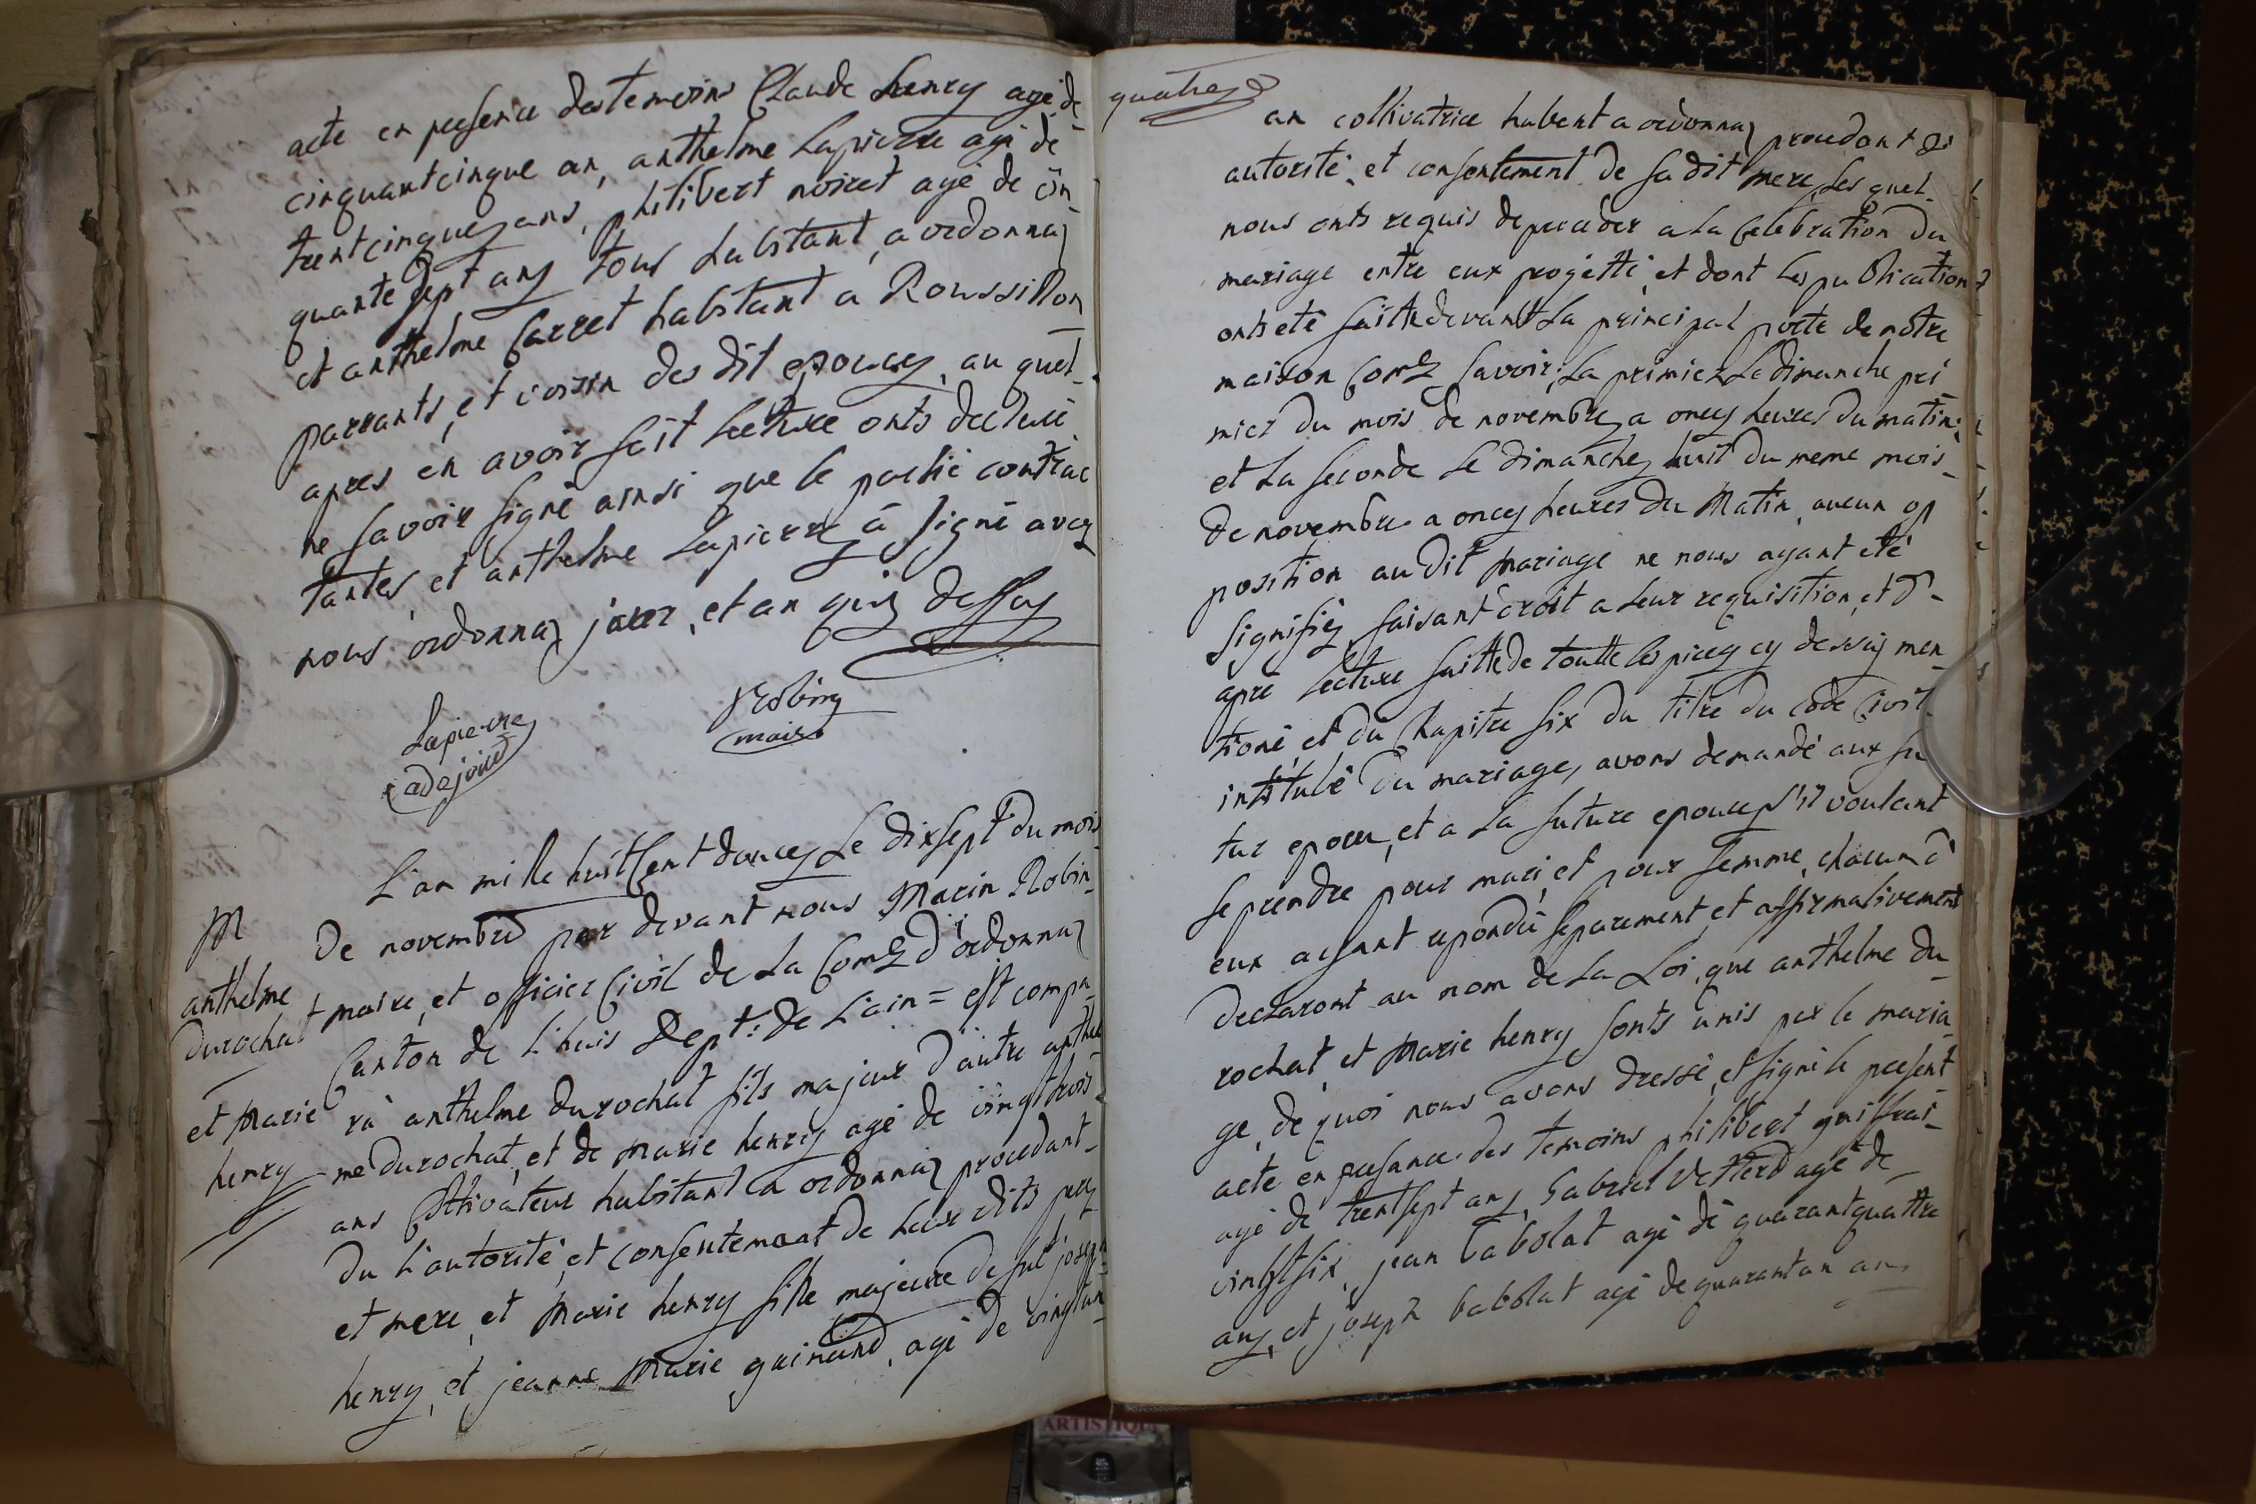 acte en presence des temoins Claude henry agé de
cinquantcinque an, anthelme Lapierre agé de
trentcinque ans, philibert noiret agé de cin-
quante sept ans tous habitant a ordonnaz
et anthelme Carret habitant a Roussillon
parrants, et voisin des dit epouxs, au quel-
apres en avoir fait Lecture onts declaré
ne savoir signé ainsi que le partié contrac
tantes, et anthelme Lapierre a signé avec
nous ordonnaz jour, et an que dessus
Lapierre
adejoint
Robin
maire
M
anthelme
Durochat
et Marie
henry
L'an mille huit Cent douces Le dixsept du mois
de novembre par devant nous Marin Robin-
maire, et officier Civil de La Comᵉ d'ordonnaz
Canton de L'huis Dept: de L'ain = est compa-
rà anthelme Durochat fils majeur d'autre anthel
me Durochat, et de Marie henry agé de vingt trois-
ans Coltivateur habitant a ordonnaz procedant-
du L'autorité, et consentement de Leur dits pere
et mere, et Marie henry fille majeure de fut joseph
henry, et jeanne Marie guinand, agé de vingt un
quatre
an coltivatrice habent a ordonnaz procedant de
autorité, et consentement de sa dit mere, Les quel-
nous onts requis de proceder a La Celebration du
mariage entre eux projetté, et dont Les publication
onts eté faitte devant La principal porte de nôtre
maison Comᵉ Savoir; La primier Le dimanche pri-
mier du mois de novembre a onces heures du matin;
et La Seconde Le dimanche huit du meme mois-
de novembre a onces heures du Matin, aucun op
position au dit Mariage ne nous ayant eté
Signifiéz faisant droit a Leur requisition, et d'-
apré Lecture faitte de toutte Les pieces cy dessus men-
tioné, et du Chapitre six du titre du code Civil-
intitulé du mariage, avons demandé aux fu
tur epoux, et a La future epouce s'il voulant
se prendre pour mari, et pour femme, chacun d'
eux aysant repondu separement, et affirmativement
declaront au nom de La Loi, que anthelme du-
rochat, et Marie henry sonts unis par le maria-
ge, de quoi nous avons dressé, et signé le present
acte en presance des temoins philibert guiffrai-
agé de trentsept ans, Gabriel Vettard agé de
vingtsix, jean babolat agé de quarantquattre
ans, et joseph babolat agé de quarantun ans